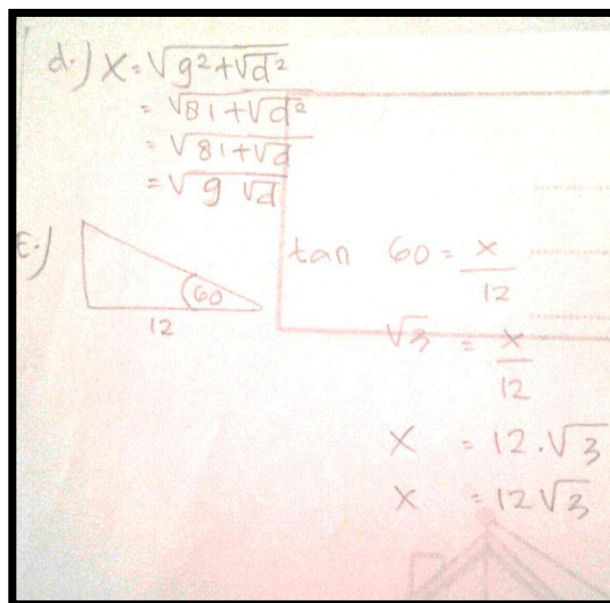 d.) X = √9² + √d²
= √81 + √d²
= √81 + √d
= √9 √d
E.)
60
12
tan 60 = x/12
√3 = x/12
X = 12.√3
X = 12√3